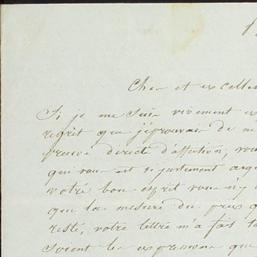 Cher et excelle
Si je me suis vivement e
regret que j'éprouvais de ne
preuve directe d'affection, vou
qui vous est si justement acqu
votre bon esprit vous n'y
que la mesure du prix q
reste, votre lettre m'a fait t
soient les expressions que